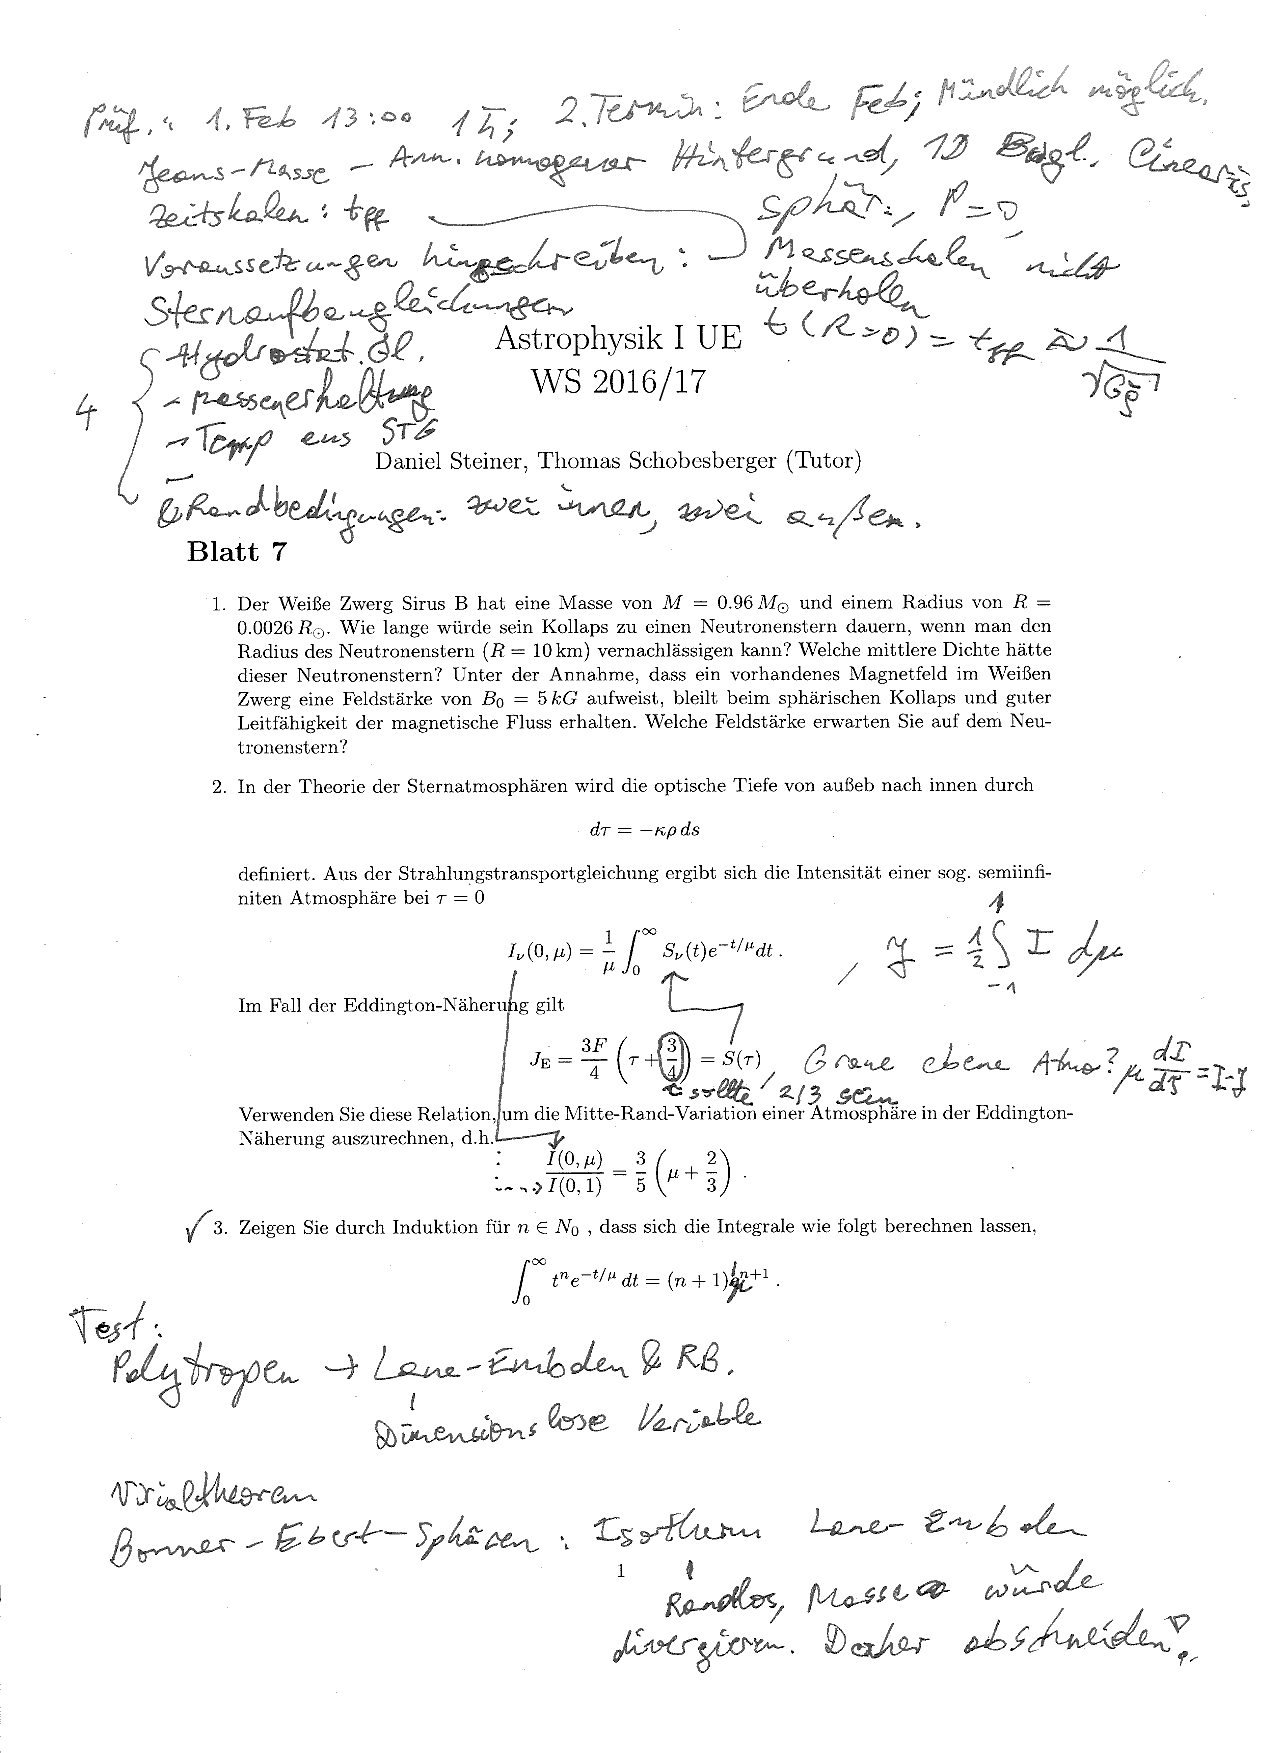 Prüf.: 1. Feb 13:00 1h; 2. Termin: Ende Feb; Mündlich möglich.
Jeans-Masse – Ann. homogener Hintergrund, 1D Bwgl. Linearis.
Zeitskalen: tff sphär., P=0
Voraussetzungen hinschreiben: Massenschalen nicht
Sternaufbaugleichungen überholen
Astrophysik I UE t(R=0) = tff ≈ 1/√(Gρ̄)
- Hydrostat. Gl.
WS 2016/17
4 { - Massenerhaltung
- Temp aus STG
Daniel Steiner, Thomas Schobesberger (Tutor)
& Randbedingungen: zwei innen, zwei außen.
Blatt 7
1. Der Weiße Zwerg Sirus B hat eine Masse von M = 0.96 M⊙ und einem Radius von R =
0.0026 R⊙. Wie lange würde sein Kollaps zu einen Neutronenstern dauern, wenn man den
Radius des Neutronenstern (R = 10 km) vernachlässigen kann? Welche mittlere Dichte hätte
dieser Neutronenstern? Unter der Annahme, dass ein vorhandenes Magnetfeld im Weißen
Zwerg eine Feldstärke von B₀ = 5 kG aufweist, bleilt beim sphärischen Kollaps und guter
Leitfähigkeit der magnetische Fluss erhalten. Welche Feldstärke erwarten Sie auf dem Neu-
tronenstern?
2. In der Theorie der Sternatmosphären wird die optische Tiefe von außeb nach innen durch
dτ = −κρ ds
definiert. Aus der Strahlungstransportgleichung ergibt sich die Intensität einer sog. semiinfi-
niten Atmosphäre bei τ = 0
Iν(0, μ) = 1/μ ∫₀^∞ Sν(t)e^{−t/μ}dt . , J = 1/2 ∫₋₁^1 I dμ
Im Fall der Eddington-Näherung gilt
J_E = 3F/4 (τ + 3/4) = S(τ) , Graue ebene Atmo? μ dI/dτ = I-J
sollte 2/3 sein
Verwenden Sie diese Relation, um die Mitte-Rand-Variation einer Atmosphäre in der Eddington-
Näherung auszurechnen, d.h.
I(0, μ)/I(0, 1) = 3/5 (μ + 2/3) .
✓ 3. Zeigen Sie durch Induktion für n ∈ N₀ , dass sich die Integrale wie folgt berechnen lassen,
∫₀^∞ tⁿe^{−t/μ} dt = (n + 1)! μ^{n+1} .
Test:
Polytropen → Lane-Embden & RB.
Dimensionslose Variable
Virialtheorem
Bonner-Ebert-Sphären: Isotherm Lane-Embden
1
Randlos, Masse würde
divergieren. Daher abschneiden!